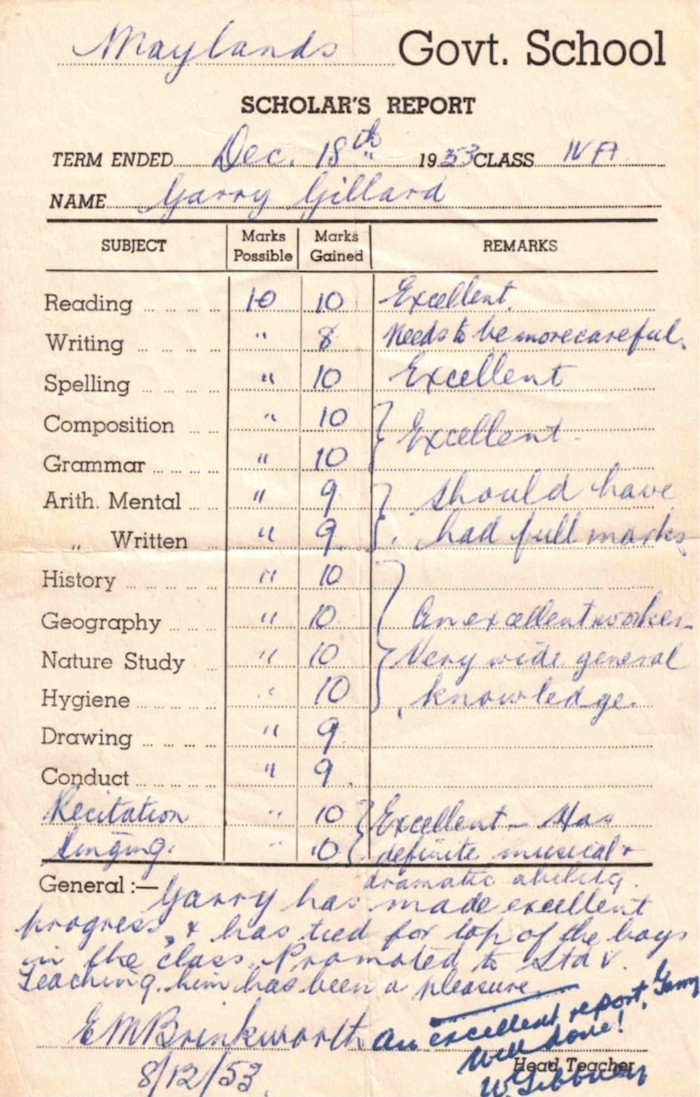 Maylands Govt. School
SCHOLAR'S REPORT
TERM ENDED Dec. 18th 1953 CLASS IV A
NAME Garry Gillard
SUBJECT Marks Possible Marks Gained REMARKS
Reading 10 10 Excellent.
Writing " 8 Needs to be more careful.
Spelling " 10 Excellent
Composition " 10 } Excellent -
Grammar " 10
Arith. Mental " 9 } should have
" Written " 9 had full marks
History " 10
Geography " 10 An excellent worker -
Nature Study " 10 Very wide general
Hygiene " 10 knowledge.
Drawing " 9
Conduct " 9.
Recitation " 10 } Excellent - Has
Singing. " 10 definite musical &
dramatic ability.
General :— Garry has made excellent
progress, & has tied for top of the boys
in the class. Promoted to Std V.
Teaching him has been a pleasure
E M Brinkworth An excellent report, Garry
Well done!
8/12/53. Head Teacher
W Gibbney